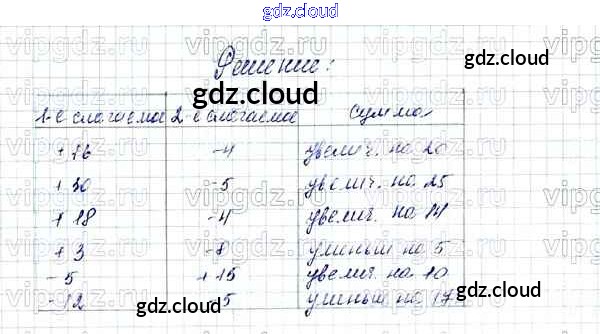 gdz.cloud
vipgdz.ru vipgdz.ru vipgdz.ru
gdz.cloud
Решение:
gdz.cloud
1-е слагаемое 2-е слагаемое Сумма
+ 16 -4 увелич. на 20
+ 30 -5 увелич. на 25
+ 18 -4 увелич. на 14
+ 3 -8 уменьш на 5
- 5 + 15 увелич. на 10
-12 -5 уменьш на 17
gdz.cloud gdz.cloud